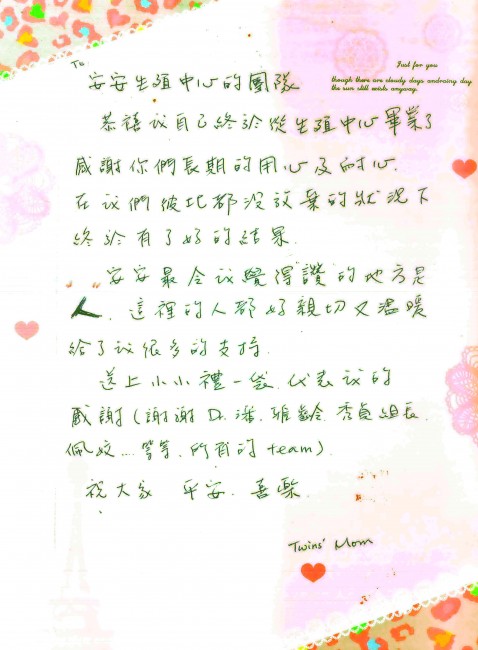 Just for you
though there are cloudy days and rainy day
the sun still exists anyway.
To
安安生殖中心的團隊
恭禧我自己終於從生殖中心畢業了
感謝你們長期的用心及耐心.
在我們彼此都沒放棄的狀況下
終於有了好的結果.
安安最令我覺得"讚"的地方是
人. 這裡的人都好親切又溫暖
給了我很多的支持.
送上小小禮一袋、代表我的
感謝(謝謝Dr.潘、雅齡、秀貞組長、
佩姣....等等、所有的team)
祝大家 平安、喜樂.
Twins' Mom